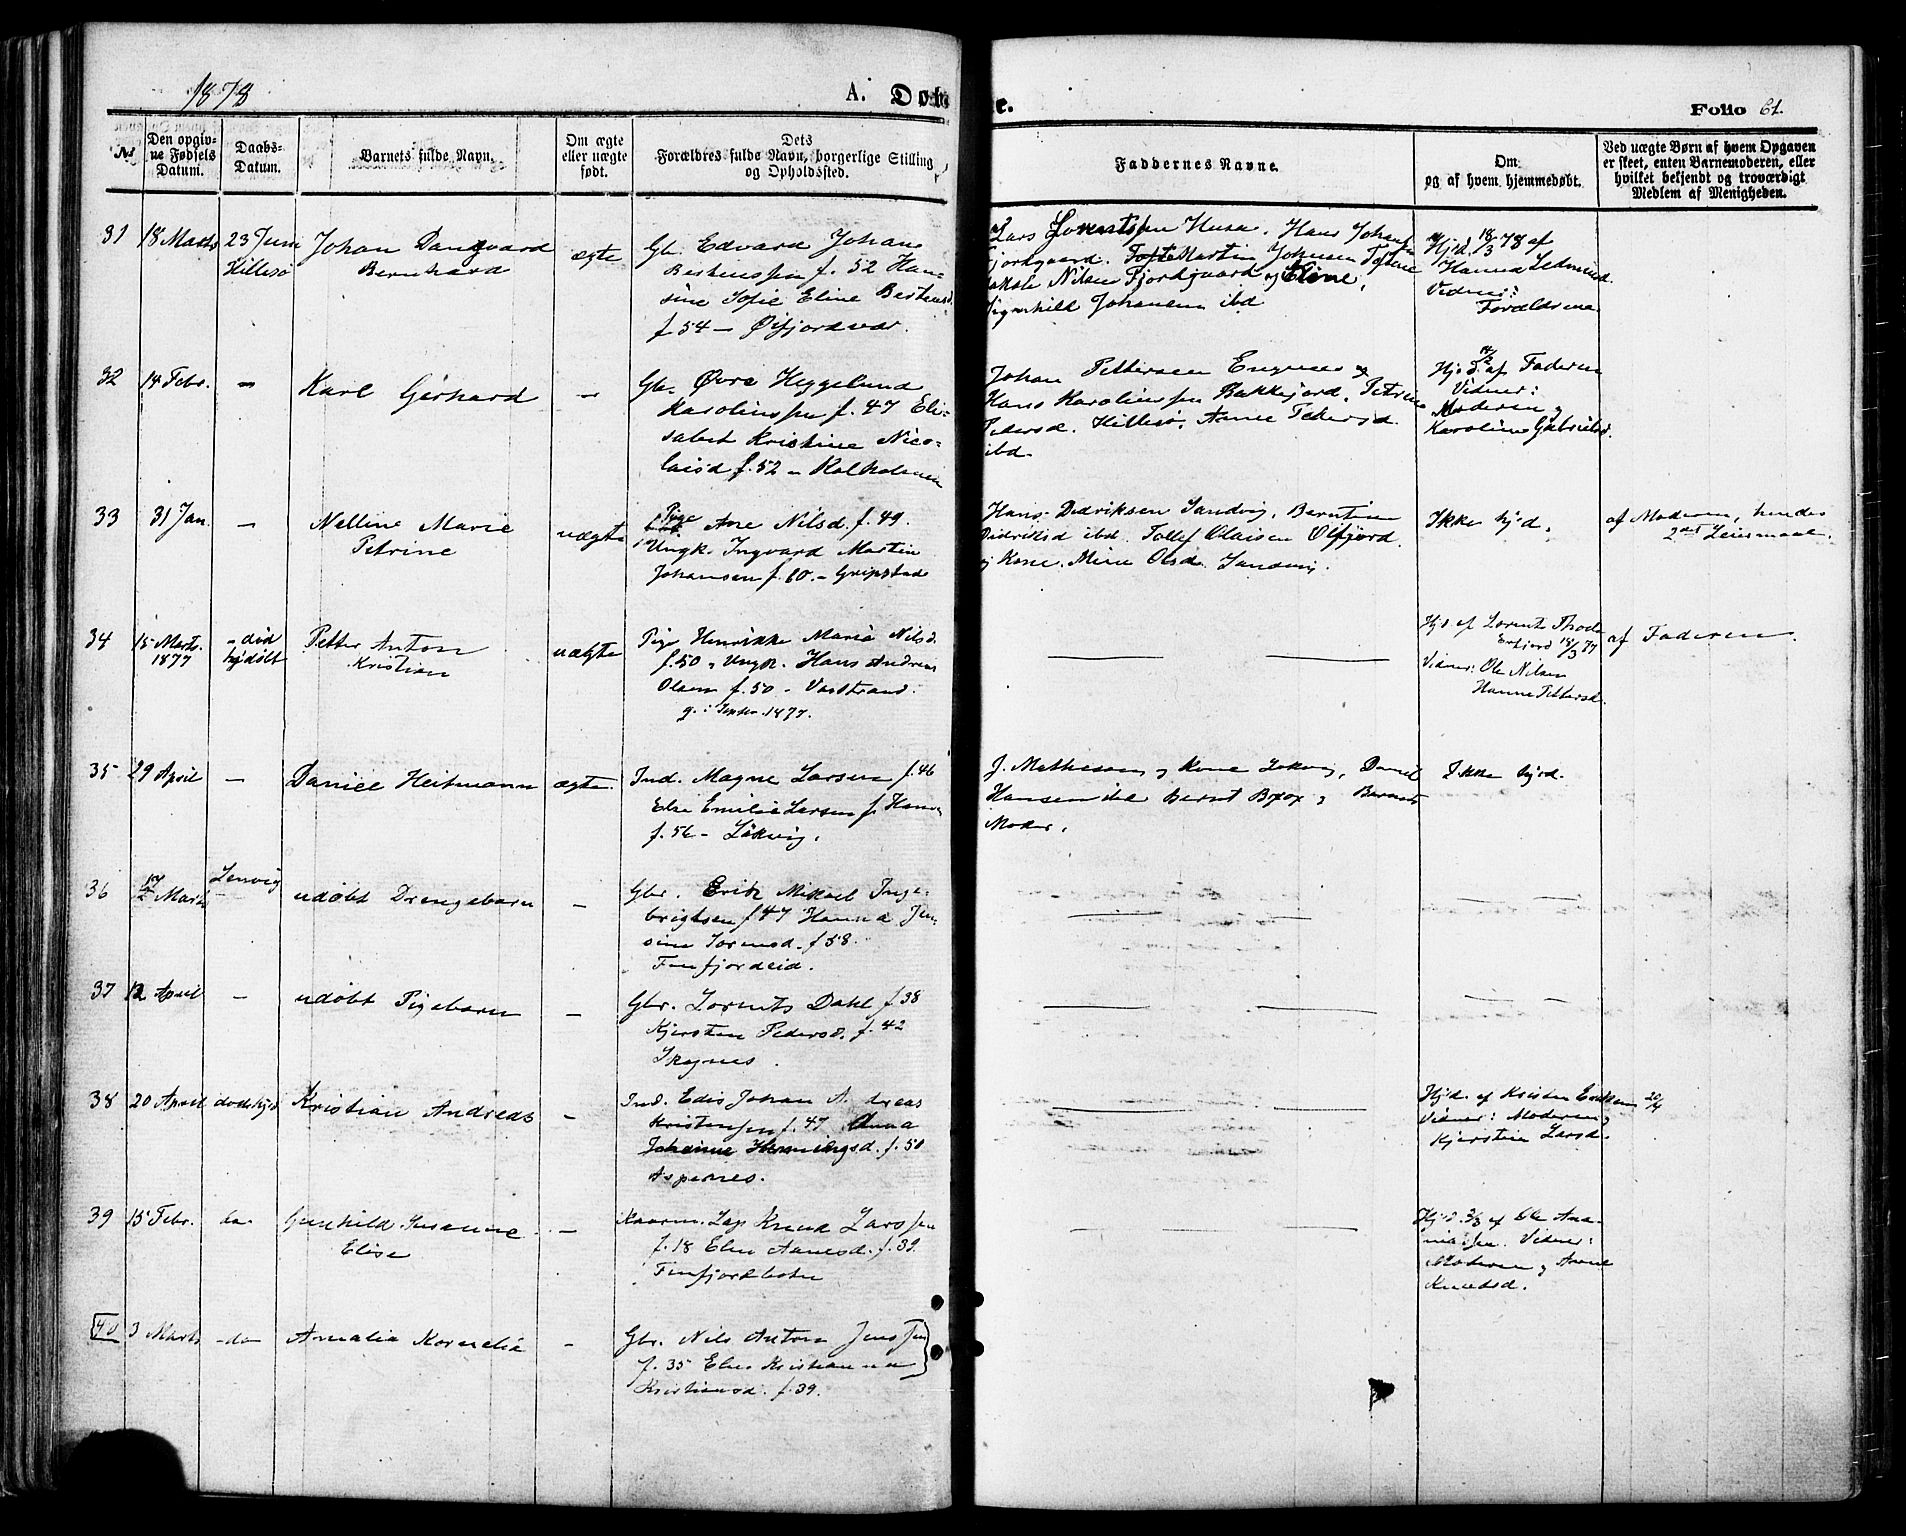 1878
A. Døb
e.
Folio 61.
No
Den opgiv-
ne Fødsels
Datum.
Daabs-
Datum.
Barnets fulde Navn.
Om ægte
eller uægte
født.
Dets
Forældres fulde Navn, borgerlige Stilling
og Opholdssted.
Faddernes Navne.
Om
og af hvem hjemmedøbt.
Ved uægte Børn af hvem Opgaven
er skeet, enten Barnemoderen, eller
hvilket bekjendt og troværdigt
Medlem af Menigheden.
31 18 Marts 23 Juni Johan Dangvard ægte Gb. Edvard Johan
Hillesø Bernhard f. 52 Han-
sine Sofie Eline
f. 54 – Øifjordvær.
Lars Lorentsen Husa, Hans Johan
Fjordgaard. Martin Johnsen
Nilsen Fjordgaard og Eline,
Johansen ibd
Hjd. 18/3 78 af
Hanna
Vidner:
Forældrene
32 14 Febr. – Karl Gerhard – Gb. Øvre Heggelund
Karolinssen f. 47 Eli-
sabet Kristine Nico-
laisd f. 52 – Kalholmen
Johan Pettersen og
Hans Karolinssen Bakkejord, Petrine
Pedersd. Hillesø, Anne Pedersd.
ibd.
Hjd. 14/2 af Faderen
Vidner:
Moderen og
Karoline Gabrielsd.
33 31 Jan. – Nelline Marie uægte Pige Ane Nilsd. f. 49.
Petrine Ungk. Ingvard Martin
Johansen f. 60. – Gripstad
Hans Dedriksen Sandvig, Berntine
Didriksd ibd. Tollef Olaisen Øifjord
og Kone, Mine Olsd. Sandvig.
Ikke hjd.
af Moderen, hendes
2det Leiermaal.
34 15 Marts. – død Petter Anton uægte Pige Henrikke Maria Nilsd.
1877 hjdøbt Kristian f. 50 og Ungk. Hans Andreas
Olsen f. 50 – Vardstrand.
g. i Septer. 1877.
Hjd. af Lorents Thode
18/3 77
Vidner: Ole Nilsen
Hanne Pettersd.
af Faderen.
35 29 April – Daniel Heitmann ægte. Ind. Magne Larsen f. 46
Emilie Larsen f. Hansen
f. 56 – Løkvig.
J. Mathesen og Kone Løkvig, Daniel
Hansen ibd Bernt og Barnets
Moder.
Ikke hjd.
36 Marts Lenvig udøbt Drengebarn – Gbr. Erik Mikael Inge-
brigtsen f. 47 Hanna Jen-
sine Sorensd. f. 58.
Finfjordeid.
37 12 April – udøbt Pigebarn – Gbr. Lorents Dahl f. 38
Kjersten Pedersd. f. 42
Skognes.
38 20 April døds hjd Kristian Andreas – Ind. Edis Johan Andreas
Kristensen f. 47 Anna
Johanne Henningsd. f. 50
Aspenes.
Hjd. af Kristen Eriksen 20/4
Vidner: Moderen og
Kjerstin Larsd.
39 15 Febr. do Gunhild Susanne – Lap Knud Larssen
Elise f. 18 Elen Aanesd. f. 39.
Finfjordbotn
Hjd. 2/3 af Ole Ana-
niassen. Vidner:
Moderen og Anne
Knudsd.
40 3 Marts – do Amalia Kornelia – Gbr. Nils Anton Jenssen
f. 35 Elen Kristianna
Kristiansd. f. 39.